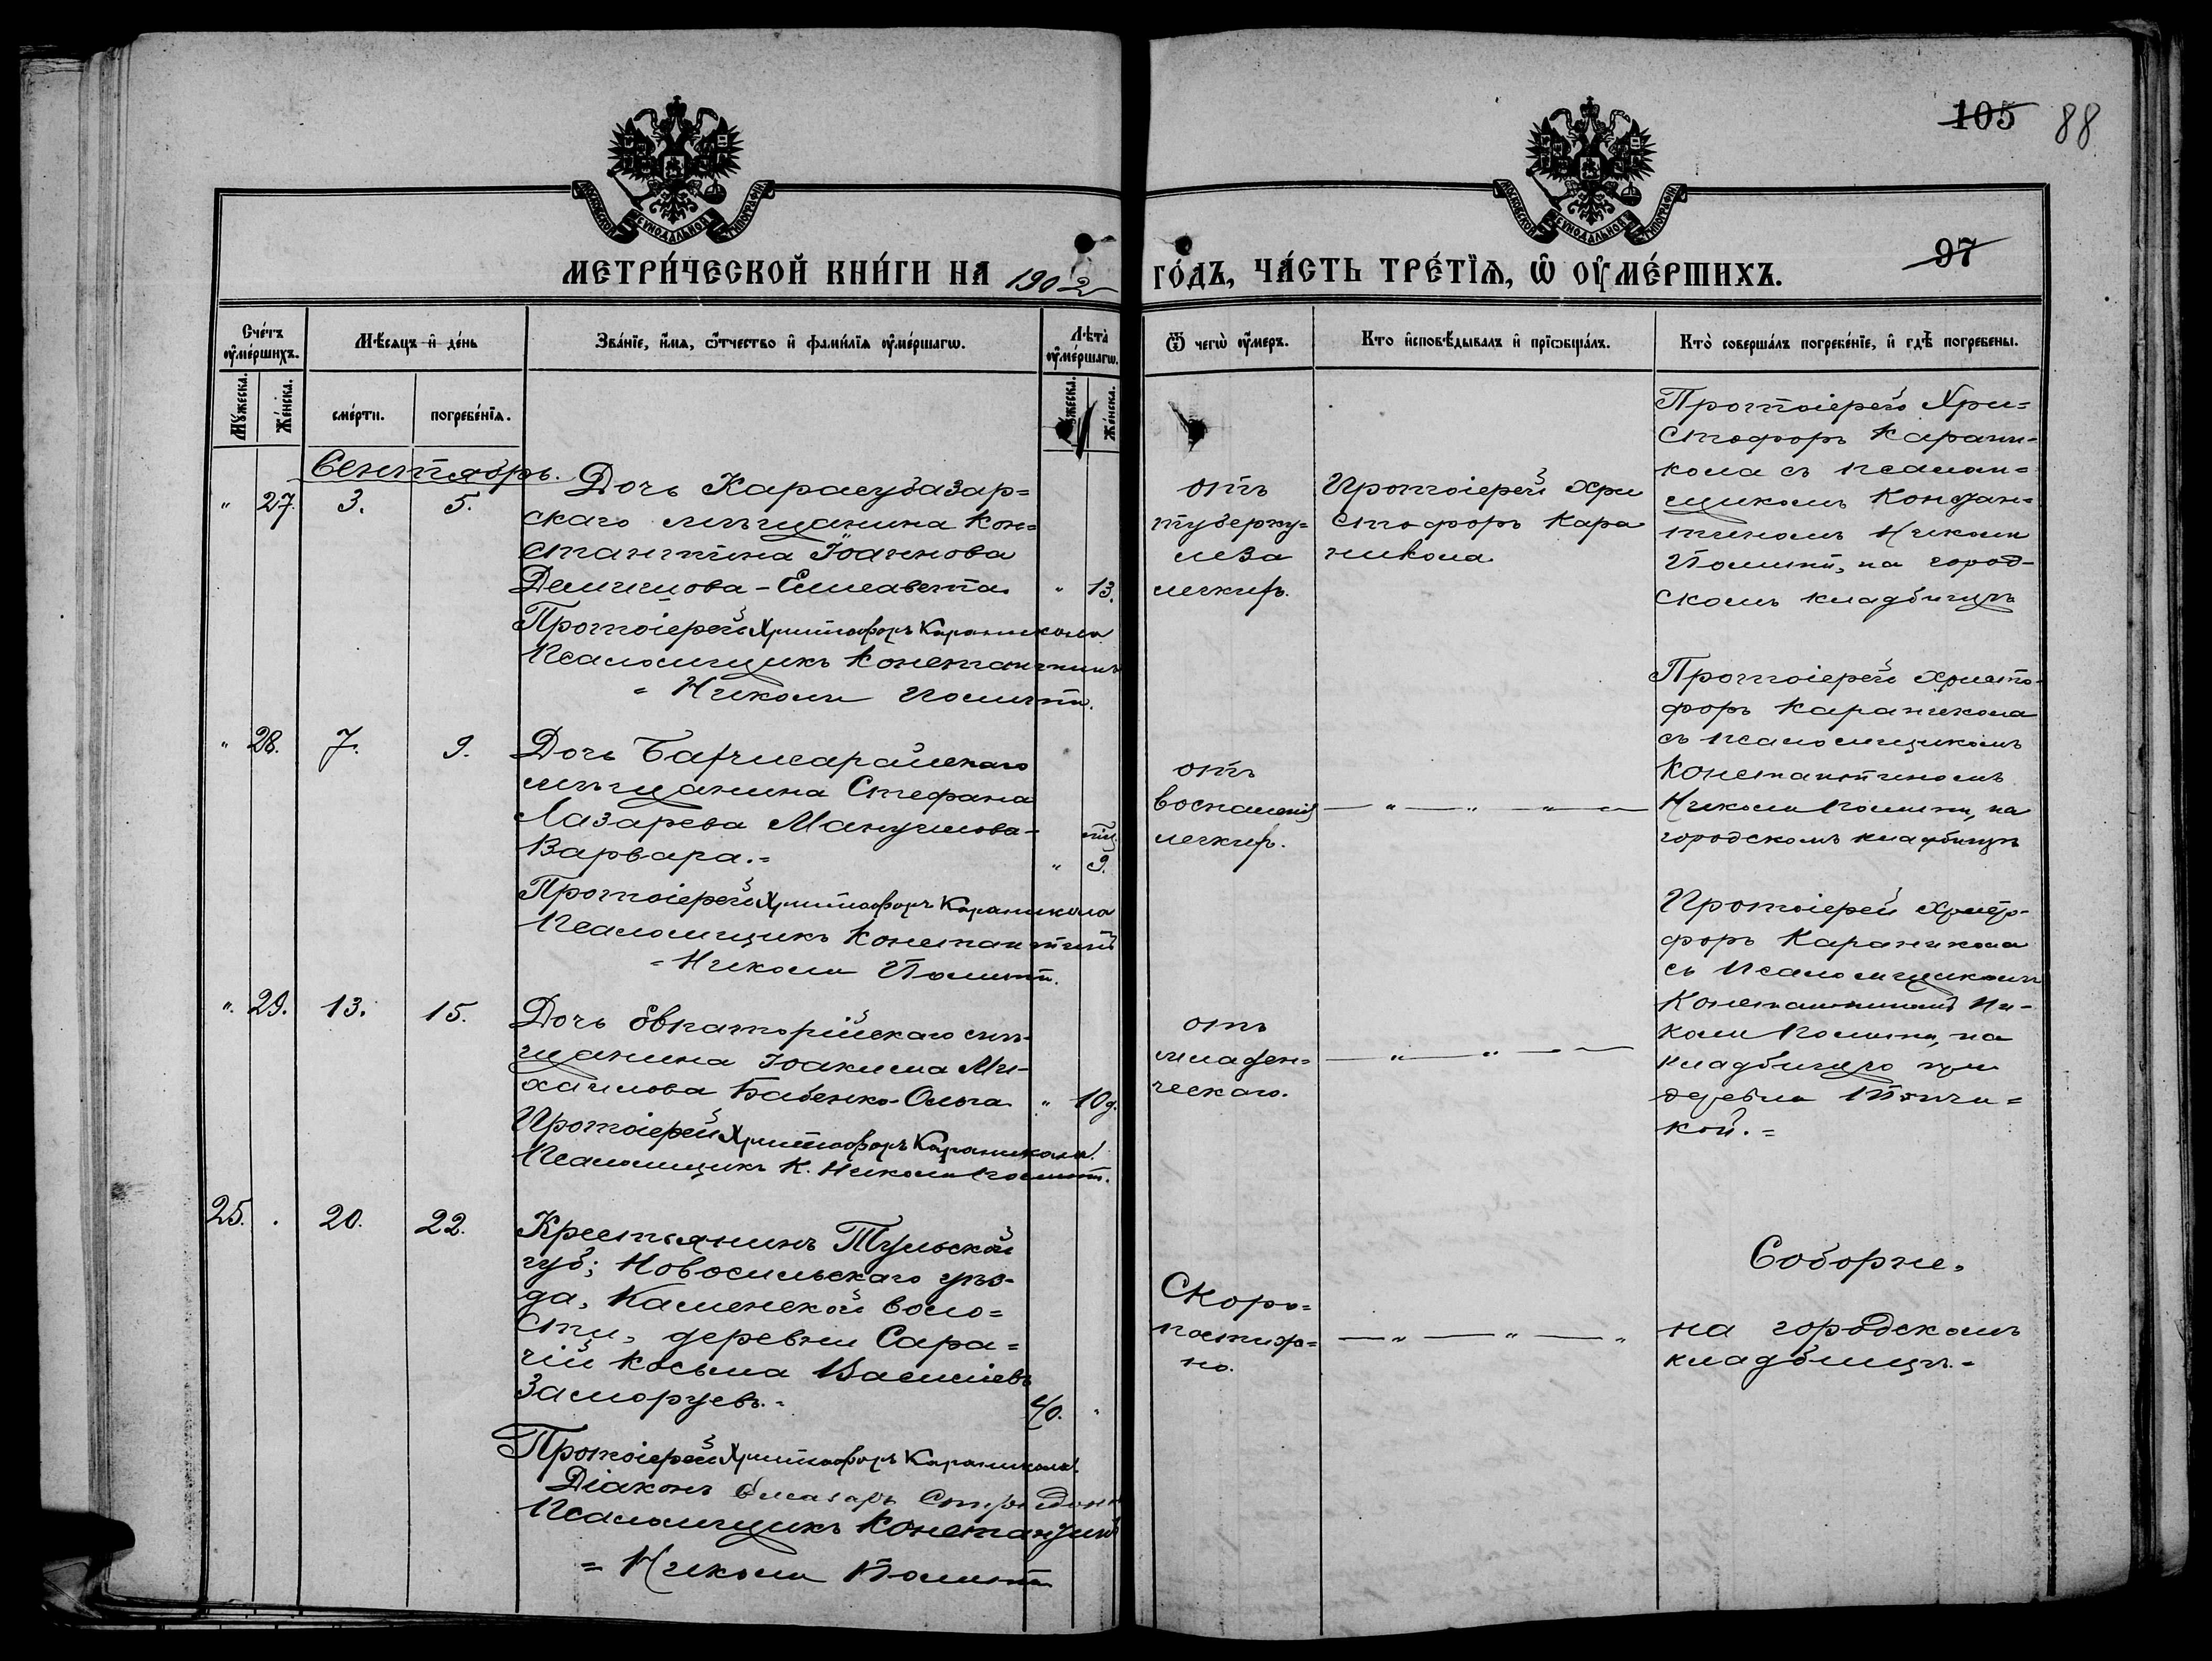 105 88
97
МОСКОВСКОЙ СѴНОДАЛЬНОЙ ТИПОГРАФІИ
МОСКОВСКОЙ СѴНОДАЛЬНОЙ ТИПОГРАФІИ
МЕТРИ́ЧЕСКОЙ КНИ́ГИ НА 1902 ГО́ДЪ, ЧА́СТЬ ТРЕ́ТІѦ, Ѡ ОУМЕ́РШИХЪ.
Сче́тъ оуме́ршихъ.
Мꙋжеска.
Же́нска.
Мѣ́сяцъ и де́нь
сме́рти.
погребе́нїѧ.
Зва́нїе, и́мѧ, ѻ҆́тчество и фами́лїѧ оуме́ршагѡ.
Лѣта̀ оуме́ршагѡ.
Мꙋжеска.
Же́нска.
Ѿ чегѡ̀ оу́меръ.
Кто и҆сповѣ́дывалъ и҆ прїѡбща́лъ.
Кто̀ соверша́лъ погребе́нїе, и҆ гдѣ̀ погребены.
Сентябрь.
" 27. 3. 5.
Дочь Карасубазар=
скаго мѣщанина Кон=
стантина Іоаннова
Демишова - Елисавета. " 13.
Протоіерей Христофоръ Караникола
Псаломщикъ Константинъ
= Николи Полити.
отъ
туберку=
леза
легкихъ.
Протоіерей Хри
стофоръ Кара
никола
Протоіерей Хри=
стофоръ Карани=
кола съ псалом=
щикомъ Констан=
тиномъ Николи
Полити, на город=
скомъ кладбищѣ
" 28. 7. 9.
Дочь Бахчисарайскаго
мѣщанина Стефана
Лазарева Мануилова -
Варвара. = " 9.
Протоіерей Христофоръ Караникола
Псаломщикъ Константинъ
= Николи Полити.
отъ
воспаленія
легкихъ.
— " — " — " —
Протоіерей Христо=
форъ Караникола
съ псаломщикомъ
Константиномъ
Николи Полити, на
городскомъ кладбищѣ
" 29. 13. 15.
Дочь Евпаторійскаго мѣ=
щанина Іоакима Ми=
хаилова Бабенко - Ольга " 10 д.
Протоіерей Христофоръ Караникола
Псаломщикъ К. Николи Полити.
отъ
младен=
ческаго.
— " — " — —
Протоіерей Христо=
форъ Караникола
съ псаломщикомъ
Константиномъ Ни=
коли Полити, на
кладбищѣ при
деревни
кой. =
25. . 20. 22.
Крестьянинъ Тульской
губ; Новосильскаго уѣз=
да, Каменской воло=
сти, деревни Сара=
чій Косьма Василіевъ
Заморуевъ. = 40. "
Протоіерей Христофоръ Караникола
Діаконъ
Псаломщикъ Константинъ
= Николи Полити
Скоро=
постиж=
но.
— " — " — "
Соборне.
на городскомъ
кладбищѣ. =